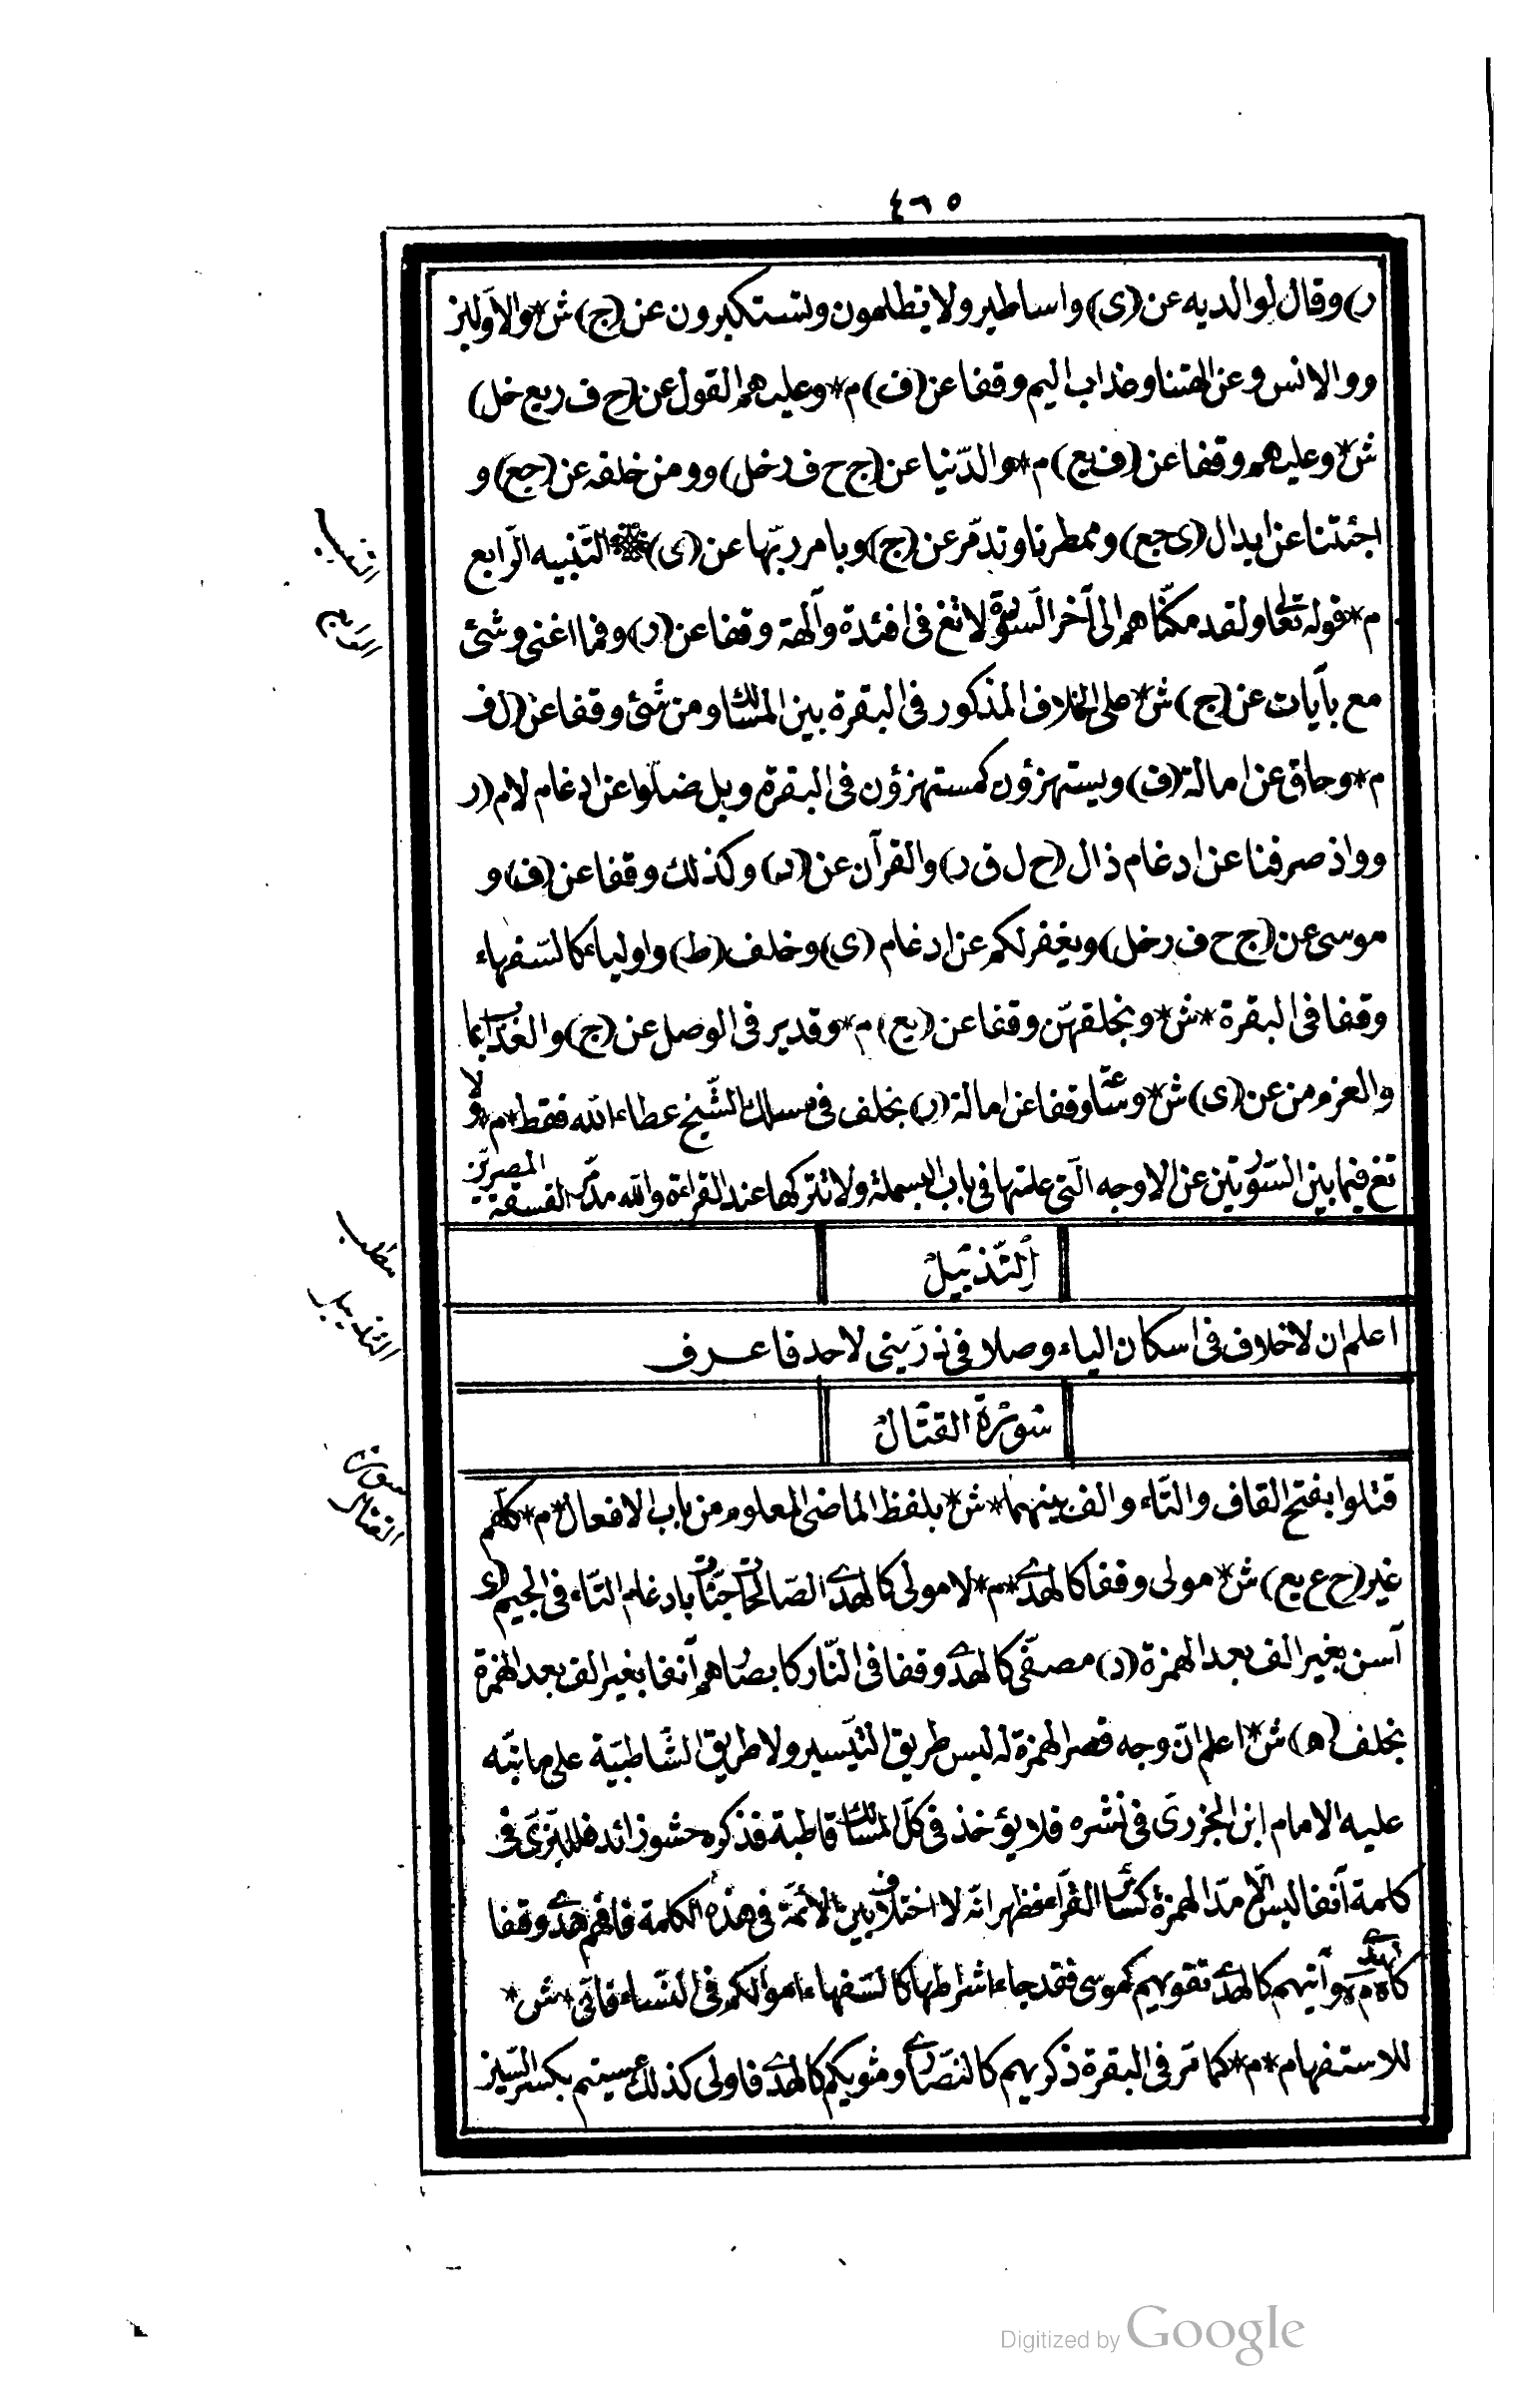 ٤٦٥
ر) وقال لوالديه عن (ى) واساطير ولا يظلمون وتستكبرون عن (ج) ش* والاولين
و والانس وعن الهتنا وعذاب اليم وقفا عن (ف) م* وعليهم القول عن (ح ف ر يع خل)
ش* وعليهم وقفا عن (ف يع) م* والدّنيا عن (ج ح ف ر خل) و ومن خلفه عن (جع) و
اجئتنا عن ابدال (ى جع) وممطرنا وتدمّر عن (ج) وبامر ربّها عن (ى) التّنبيه الرّابع
م* قوله تعالى ولقد مكنّاهم الى آخر السّورة لا تغ فى افئدة وآلهة وقفا عن (ر) وفما اغنى وشئ
مع بآيات عن (ج) ش* على الخلاف المذكور فى البقرة بين المسالك ومن شئ وقفا عن (ل ف
م* وحاق عن امالة (ف) ويستهزؤن كمستهزؤن فى البقرة وبل ضلّوا عن ادغام لام (ر
و واذ صرفنا عن ادغام ذال (ح ل ق ر) والقرآن عن (د) وكذلك وقفا عن (ف) و
موسى عن (ج ح ف ر خل) ويغفر لكم عن ادغام (ى) وخلف (ط) واولياء كالسّفهاء
وقفا فى البقرة *ش* وبخلقهنّ وقفا عن (يع) م* وقدير فى الوصل عن (ج) والعذاب بما
والعزم من عن (ى) ش* وساعة وقفا عن امالة (ر) بخلف فى مسلك الشّيخ عطاء الله فقط *م* ولا
تغ فيما بين السّورتين عن الاوجه الّتى علمتها فى باب البسملة ولا تتركها عند القراءة والله مدمّر الفسقة المصرين
اَلتَّذْيِيلُ
اعلم ان لا خلاف فى اسكان الياء وصلا فى ذرّيتى لاحد فاعرف
سُورَةُ الْقِتَالْ
قتلوا بفتح القاف والتّاء والف بينهما *ش* بلفظ الماضى المعلوم من باب الافعال *م* كلّهم
غير (ح ع يع) ش* مولى وقفا كالهدى *م* لا مولى كالهدى الصّالحات جنّات بادغام التّاء فى الجيم (ى
آسن بغير الف بعد الهمزة (د) مصفّى كالهدى وقفا فى النّار كابصارهم آنفا بغير الف بعد الهمزة
بخلف (ه) ش* اعلم انّ وجه قصر الهمزة له ليس طريق التّيسير ولا طريق الشّاطبيّة على ما نبّه
عليه الامام ابن الجزرىّ فى نشره فلا يؤخذ فى كلّ المسالك قاطبة فذكره حشو زائد فللبزّىّ فى
كلمة آنفا ليس الّا مدّ الهمزة كسائر القرّاء فظهر انّه لا اختلاف بين الائمّة فى هذه الكلمة فافهم هدى وقفا
كاذى *م* وآتيهم كالهدى تقويهم كموسى فقد جاء اشراطها كالسّفهاء اموالكم فى النّساء فانّى *ش*
للاستفهام *م* كما مرّ فى البقرة ذكريهم كالنّصارى ومثويكم كالهدى فاولى كذلك عسيتم بكسر السّين
التنبيه
الرابع
مطلب
التذييل
سورة
القتال
Digitized by Google